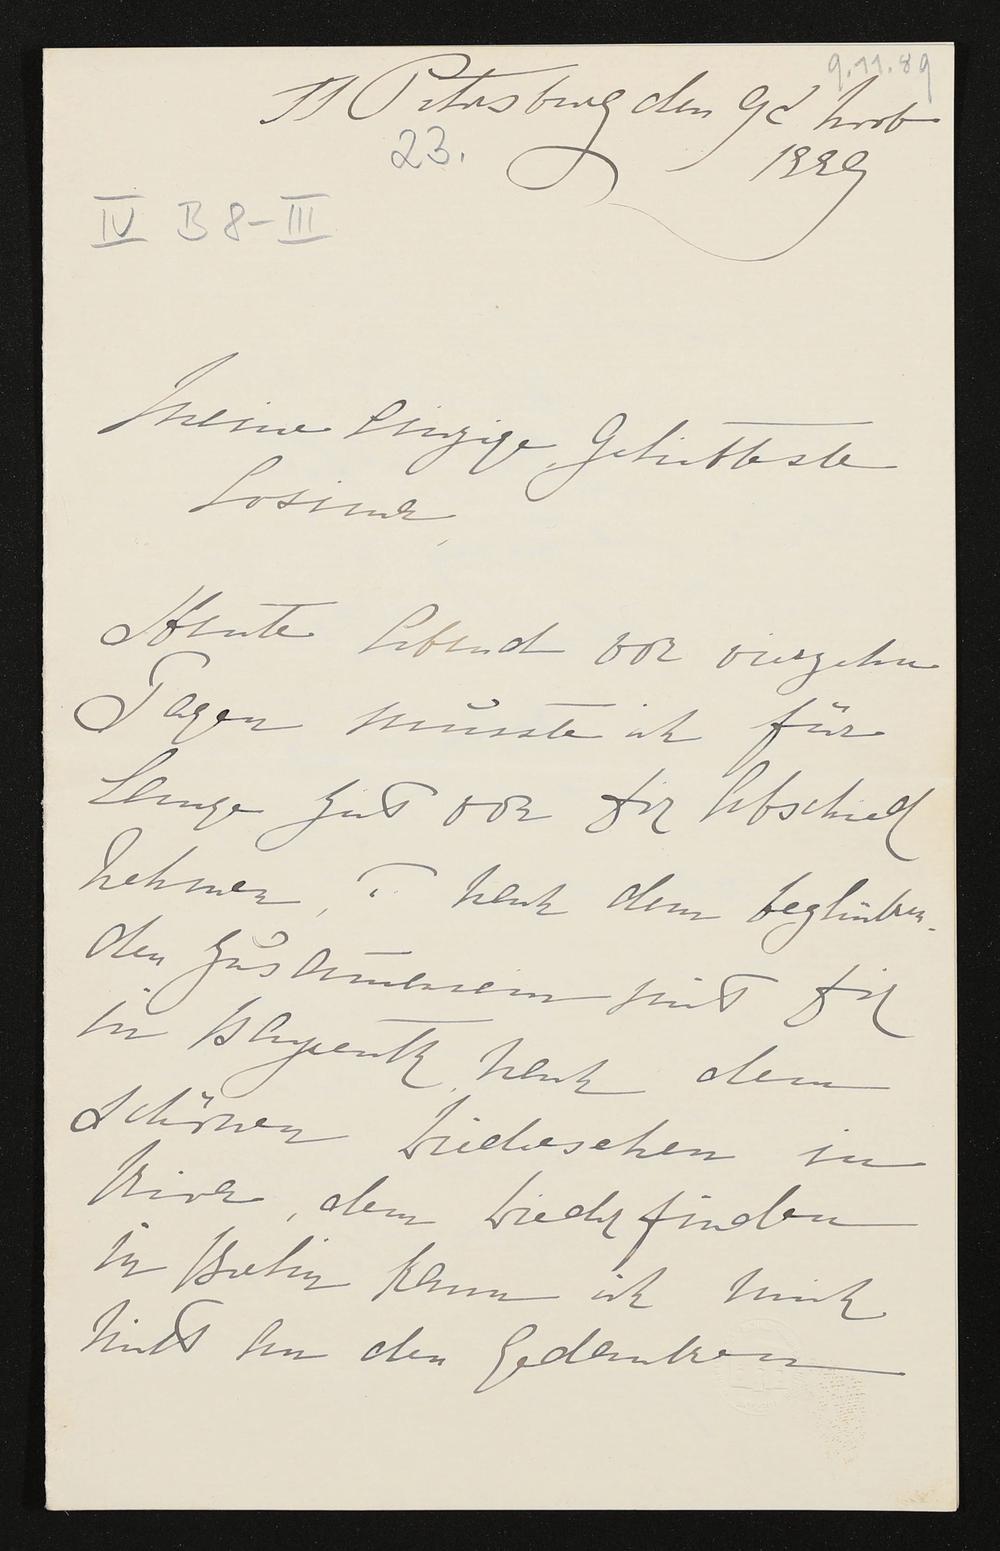 9.11.89
St Petersburg den 9t Novb
1889
23.
IV B 8-III
Meine Einzige, Geliebteste
Cosima,
Heute Abend vor vierzehn
Tagen musste ich für
Lange Zeit von Dir Abschied
nehmen, nach dem beglücken-
den Zusammensein mit Dir
in Bayreuth, nach dem
schönen Wiedersehen in
Riva, dem Wiederfinden
in Berlin kann ich mich
nicht an den Gedanken